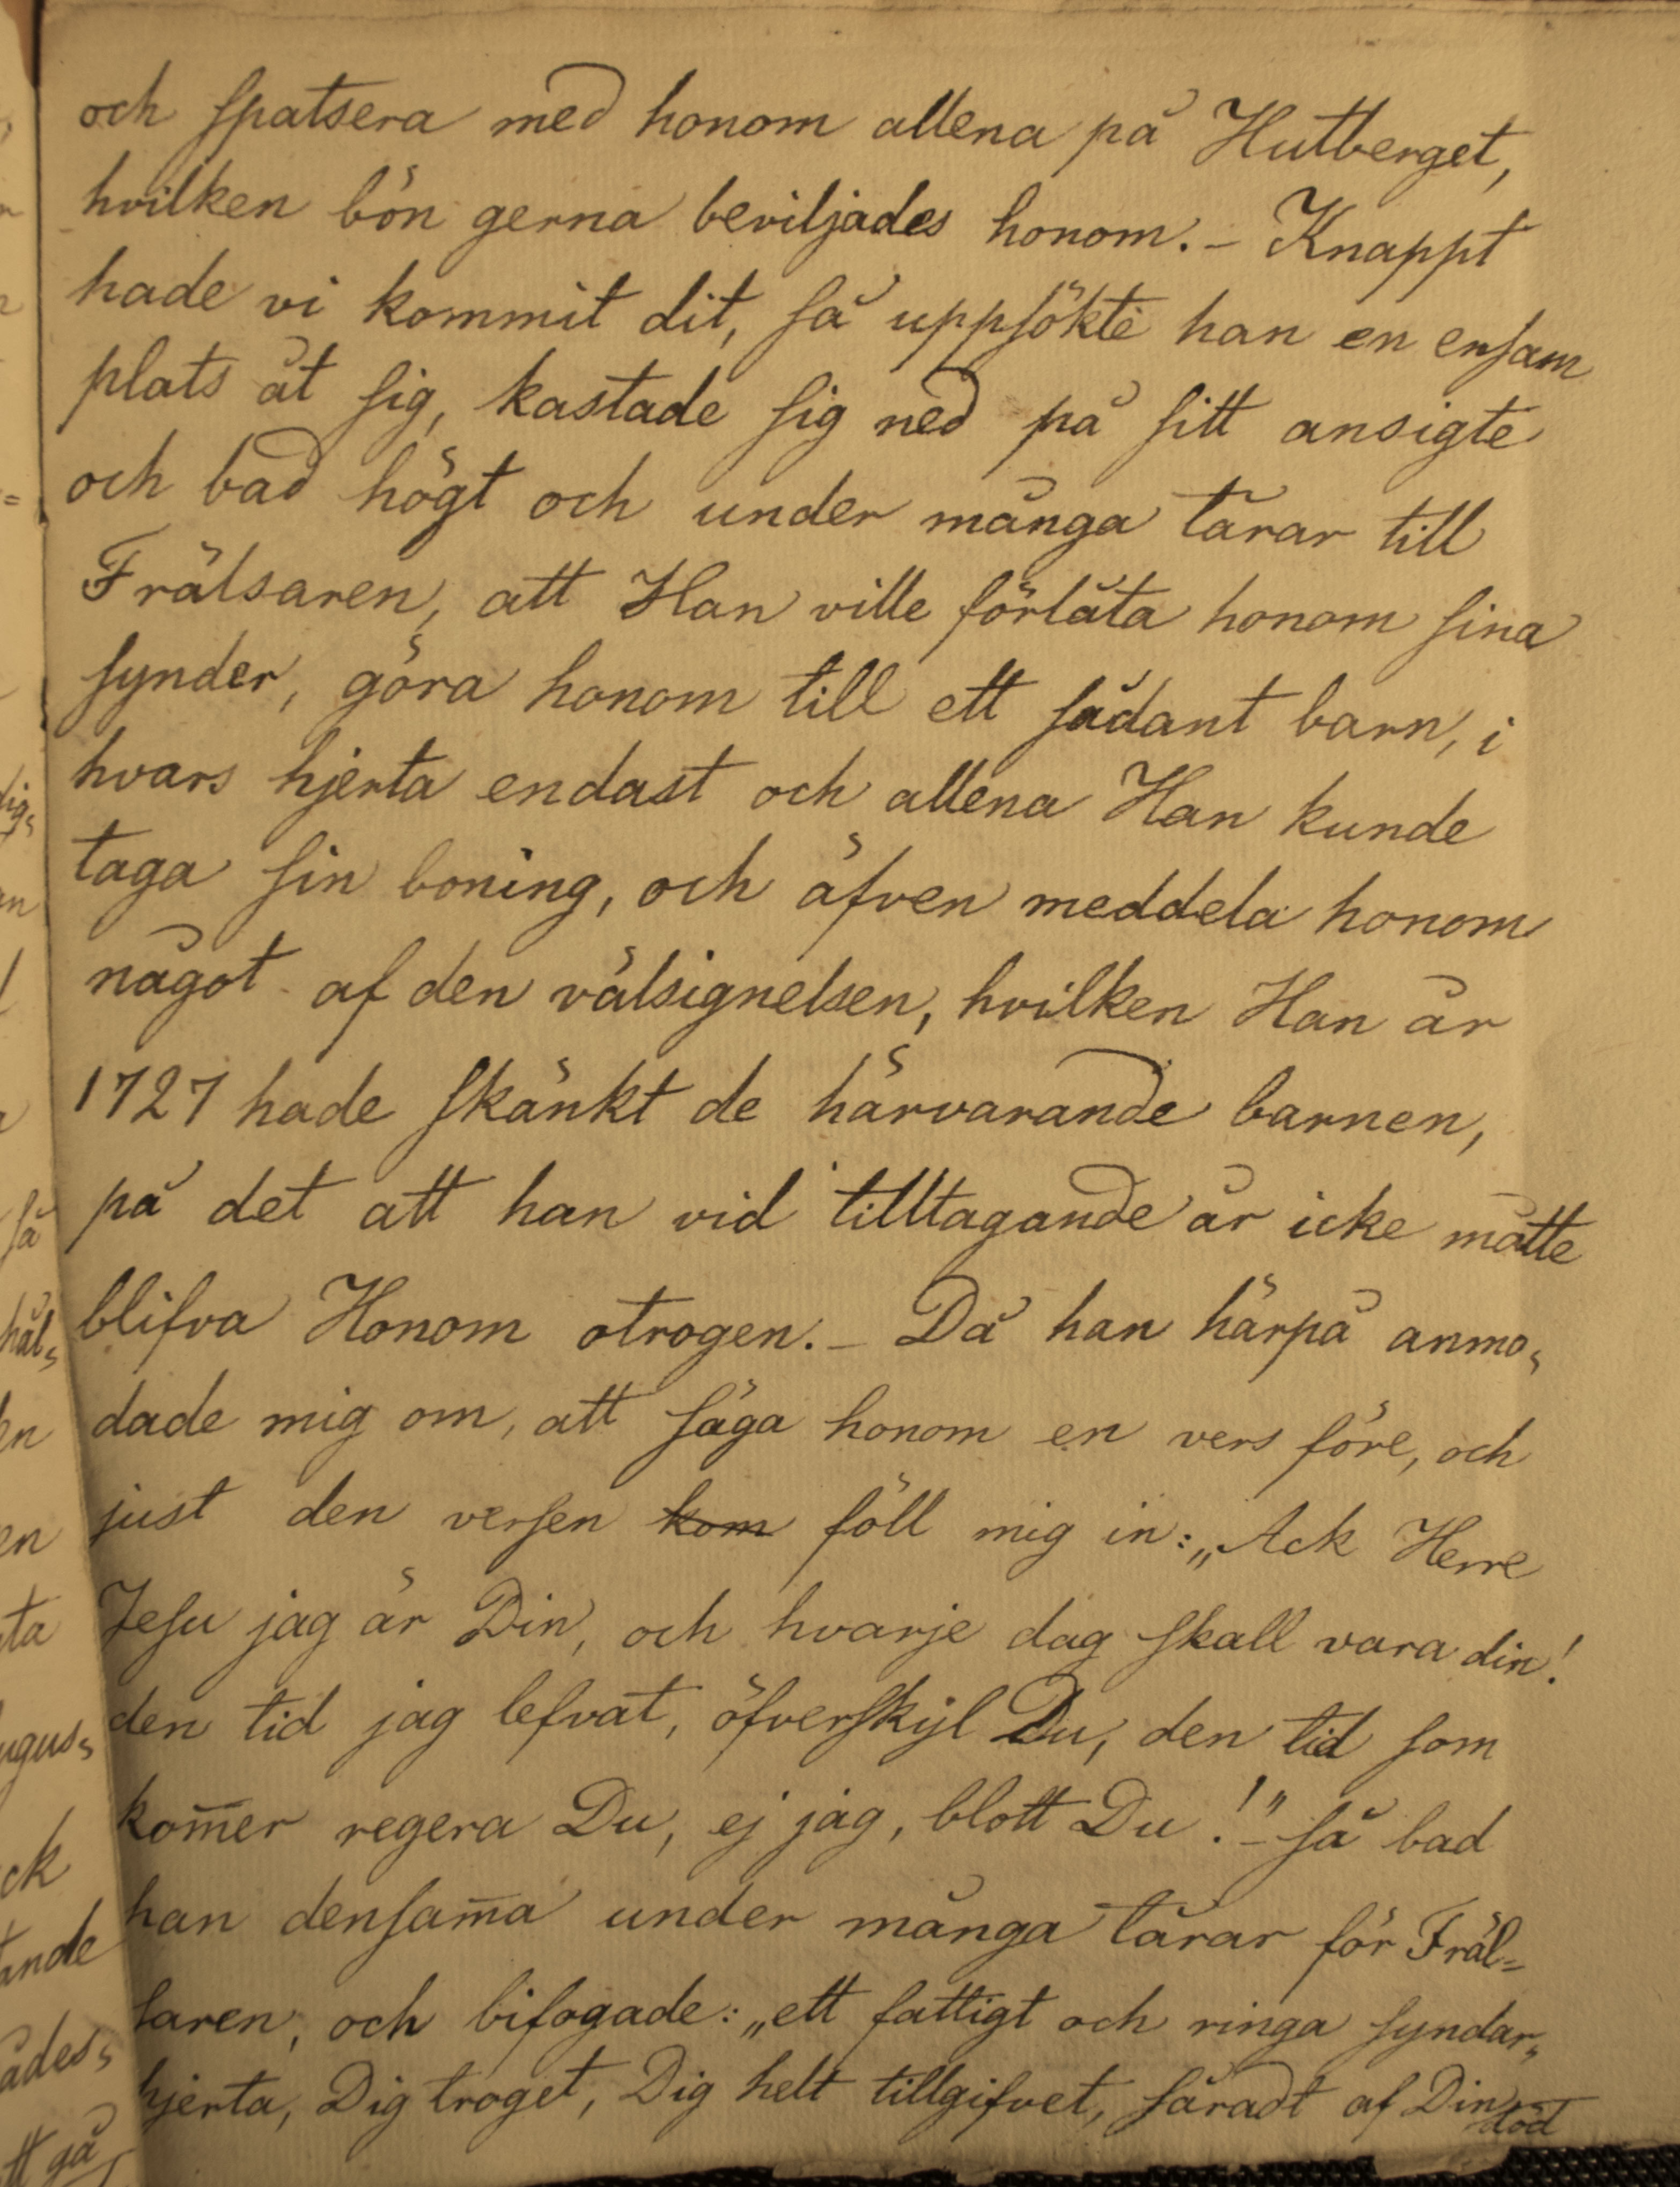 och spatsera med honom allena på Hutberget,
hvilken bön gerna beviljades honom. – Knappt
hade vi kommit dit, så uppsökte han en ensam
plats åt sig, kastade sig ned på sitt ansigte
och bad högt och under många tårar till
Frälsaren, att Han ville förlåta honom sina
synder, göra honom till ett sådant barn, i
hvars hjerta endast och allena Han kunde
taga sin boning, och äfven meddela honom
något af den välsignelsen, hvilken Han år
1727 hade skänkt de härvarande barnen,
på det att han vid tilltagande år icke måtte
blifva Honom otrogen. – Då han härpå anmo-
dade mig om, att säga honom en vers före, och
just den versen kom föll mig in: „Ack Herre
Jesu jag är Din, och hvarje dag skall vara din!
den tid jag lefvat, öfverskyl Du, den tid som
kom̄er regera Du, ej jag, blott Du!" – så bad
han densam̄a under många tårar för Fräl=
saren, och bifogade: „ett fattigt och ringa syndar„
hjerta, Dig troget, Dig helt tillgifvet, såradt af Din
död